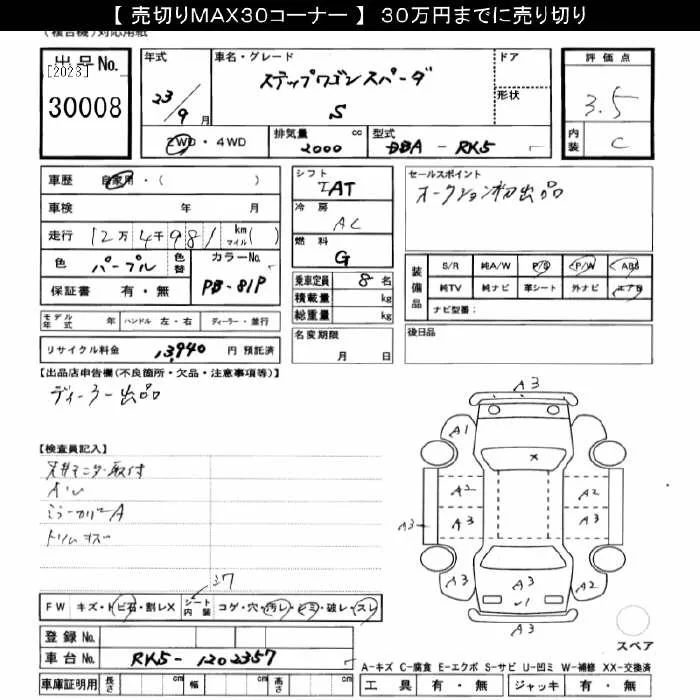 【 売切りMAX30コーナー 】 30万円までに売り切り
出品No. [2023]
30008
年式 23/9月
車名・グレード ステップワゴンスパーダ
S
ドア
形状
2WD・4WD
排気量 2000 cc
型式 DBA - RK5
評価点 3.5
内装 C
車歴 自家用・( )
車検 年 月
走行 12万4千981 km マイル( )
色 パープル 色替 カラーNo. PB-81P
保証書 有・無
シフト IAT
冷房 AC
燃料 G
乗車定員 8 名
積載量 kg
総重量 kg
セールスポイント
オークション初出品
装備品 S/R 純A/W P/S P/W ABS
純TV 純ナビ 革シート 外ナビ エアB
ナビ型番:
モデル年式 年 ハンドル 左・右 ディーラー・並行
リサイクル料金 13,940 円 預託済
名変期限
月 日
後日品
【出品店申告欄(不良箇所・欠品・注意事項等)】
ディーラー出品
【検査員記入】
天井モニター取付
ミラーカバーA
トリムキズ
37
FW キズ・トビ石・割レX シート内装 コゲ・穴・汚レ・シミ・破レ・スレ
登録No.
車台No. RK5-1202357
車庫証明用 長さ cm 幅 cm 高さ cm
A3
A1
x
A2 A2
A3 A3 A3
A2 A3 A3
✓1
A3
スペア
A-キズ C-腐食 E-エクボ S-サビ U-凹ミ W-補修 XX-交換済
工具 有・無 ジャッキ 有・無